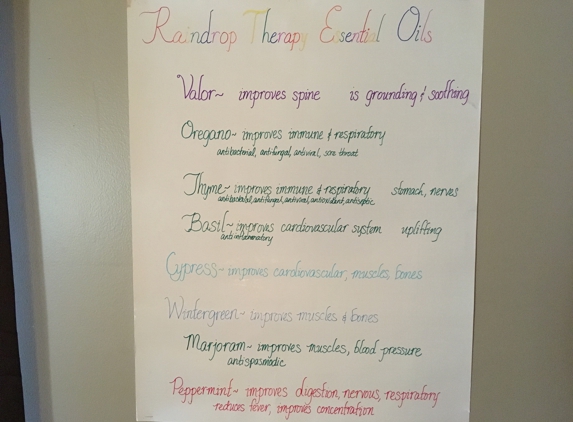 Raindrop Therapy Essential Oils
Valor~ improves spine is grounding & soothing
Oregano~ improves immune & respiratory
antibacterial, antifungal, antiviral, sore throat
Thyme~ improves immune & respiratory stomach, nerves
antibacterial, antifungal, antiviral, antioxidant, antiseptic
Basil~ improves cardiovascular system uplifting
antiinflammatory
Cypress~ improves cardiovascular, muscles, bones
Wintergreen~ improves muscles & bones
Marjoram~ improves muscles, blood pressure
antispasmodic
Peppermint~ improves digestion, nervous, respiratory
reduces fever, improves concentration